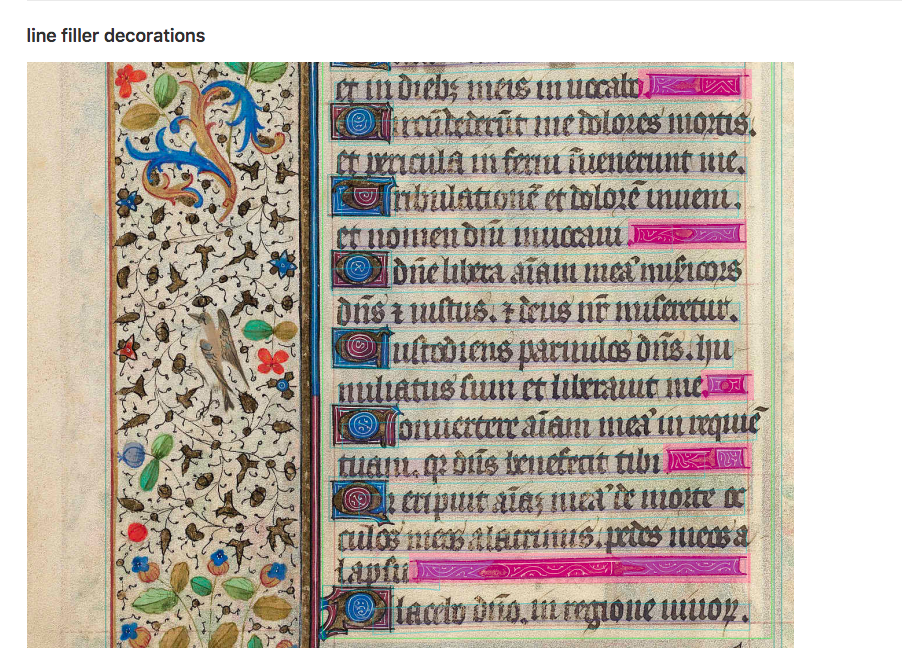 line filler decorations
et in dieb; meis inuocabo
Circūdederūt me dolores mortis.
et pericula inferni īuenerunt me.
Tribulationē et dolorē inueni.
et nomen dn̄i inuocaui.
O dn̄e libera aīam meā misericors
dn̄s ⁊ iustus. ⁊ deus nr̄ miseretur.
Custodiens paruulos dn̄s. hu
miliatus sum et liberauit me.
Conuertere aīam meā in requiē
tuam. qꝛ dn̄s benefecit tibi
eripuit aīaꝫ meā de morte oc
culos meos a lacrimis. pedes meos a
lapsu
Placebo dn̄o. in regione uiuoꝝ.